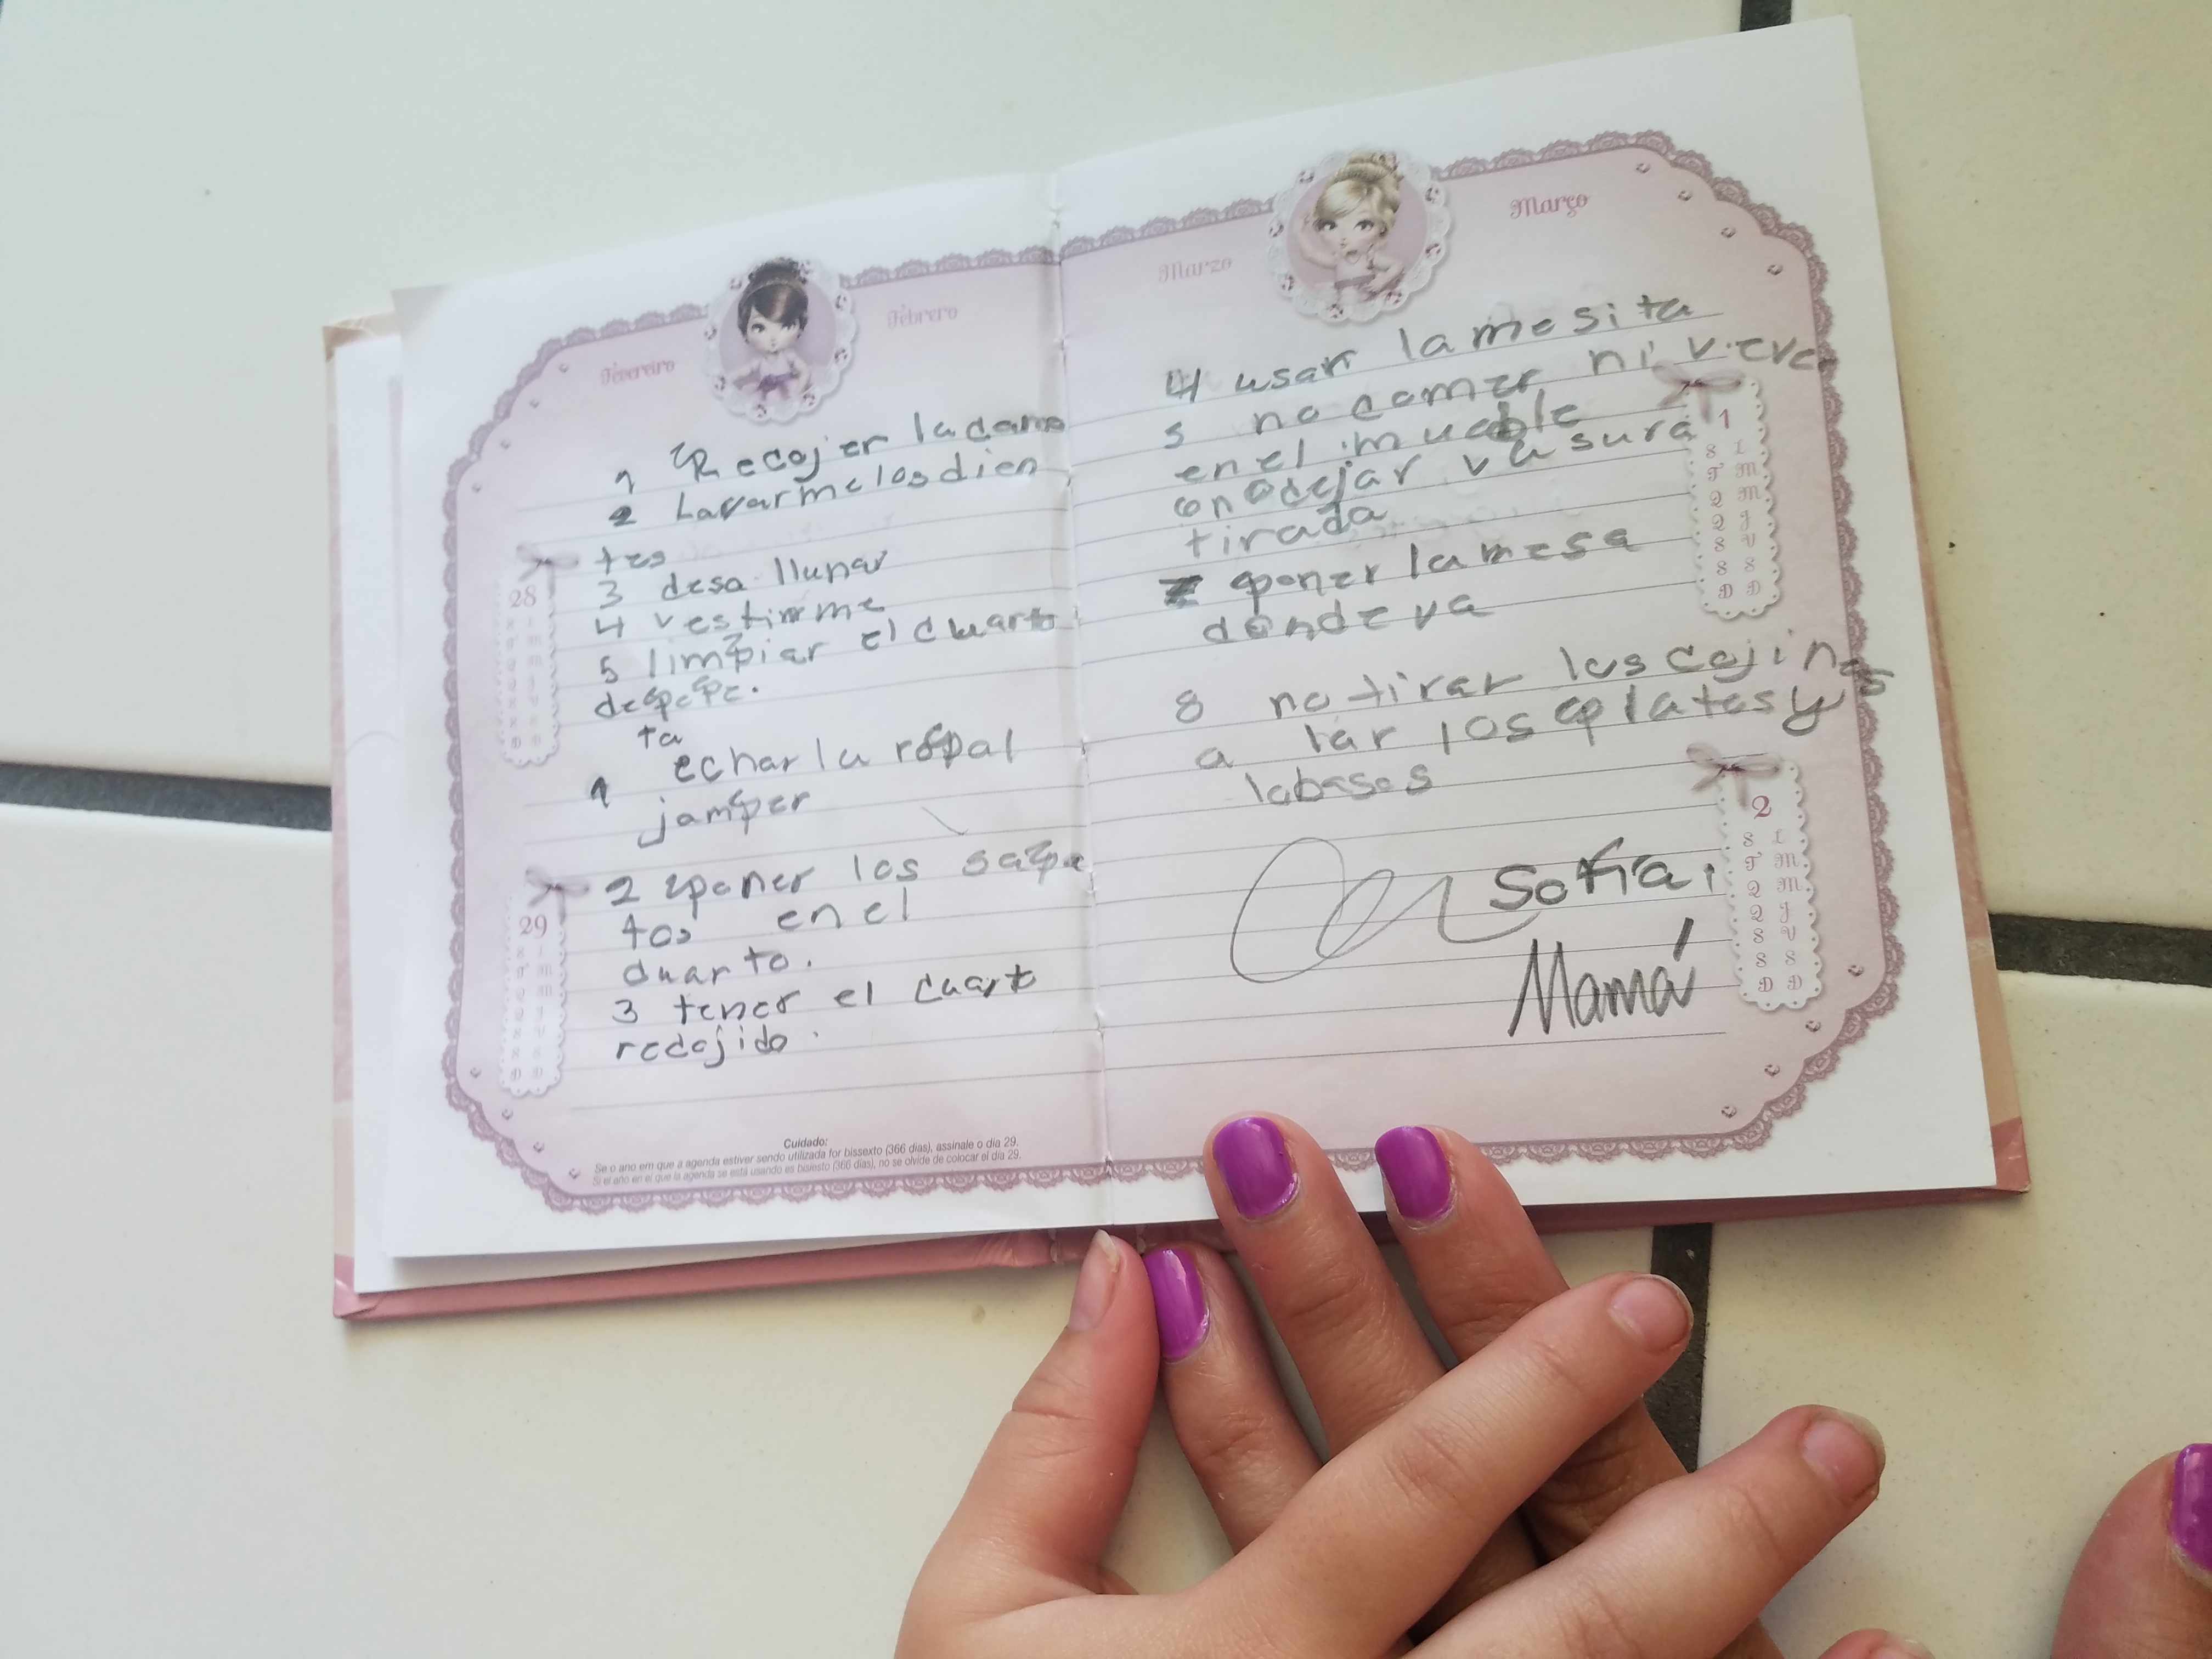 Fevereiro
Febrero
1 Recojer la cama
2 Lavarme los dien
tes
3 desallunar
4 vestirme
5 limpiar el cuarto
de pepe.
ta
1 echar la ropa l
jamper
2 poner los sapa
tos en el
cuarto.
3 tener el cuarto
recojido.
28
29
Cuidado:
Se o ano em que a agenda estiver sendo utilizada for bissexto (366 dias), assinale o dia 29.
Si el año en el que la agenda se está usando es bisiesto (366 días), no se olvide de colocar el día 29.
Marzo
Março
4 usar la mesita
5 no comer ni
en el mueble
no dejar vasura
tirada
7 poner la mesa
donde va
8 no tirar los cojines
a los platos y
labasos
Sofia.
Mamá
1
S L
T M
Q M
Q J
S V
S S
D D
2
S L
T M
Q M
Q J
S V
S S
D D